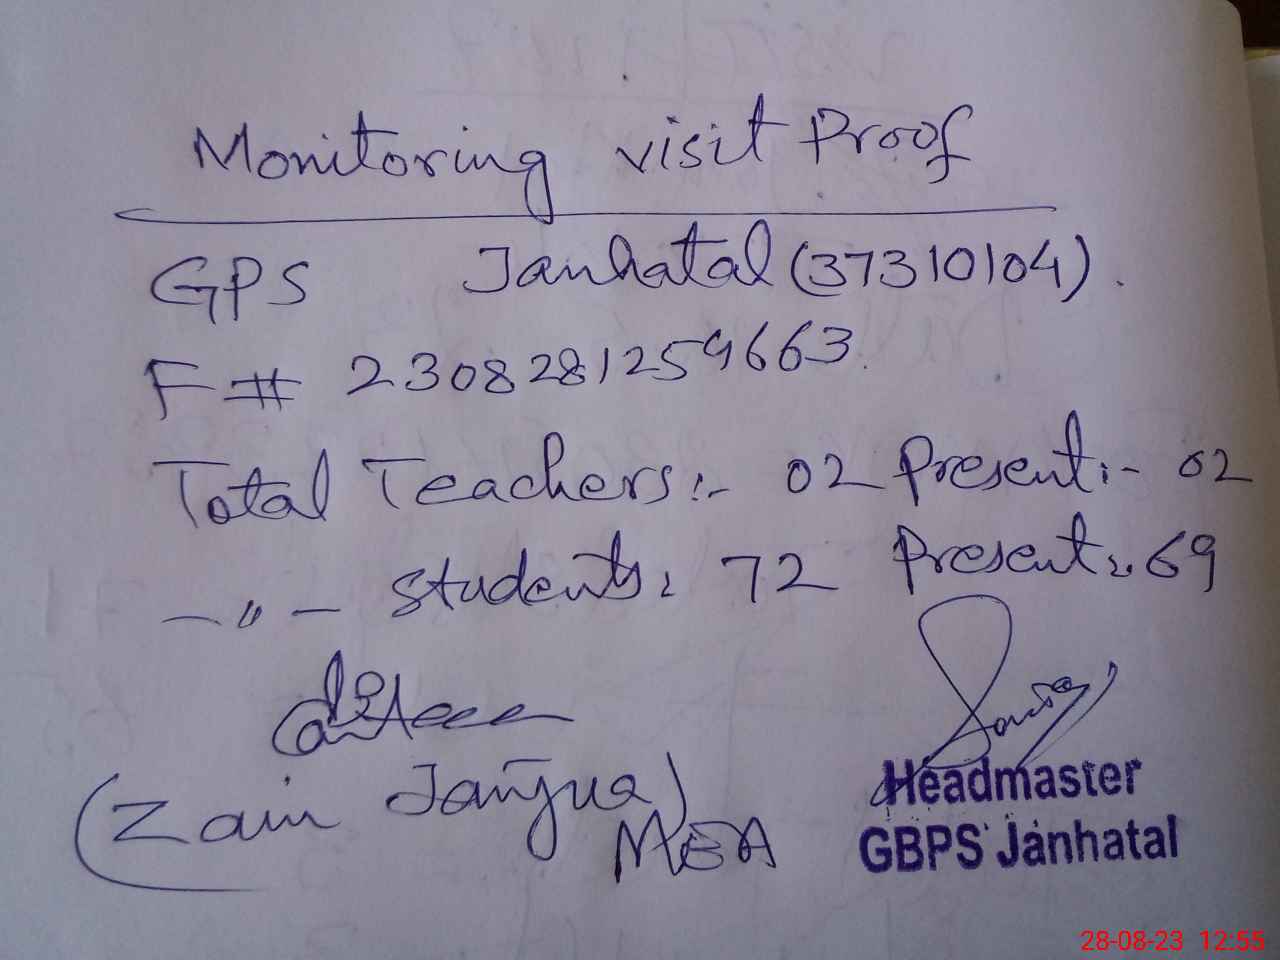 Monitoring visit Proof
GPS Janhatal (37310104).
F# 2308281259663.
Total Teachers:- 02 Present:- 02
—〃— students: 72 Present: 69
(Zain Janjua)
MEA
Headmaster
GBPS Janhatal
28-08-23 12:55